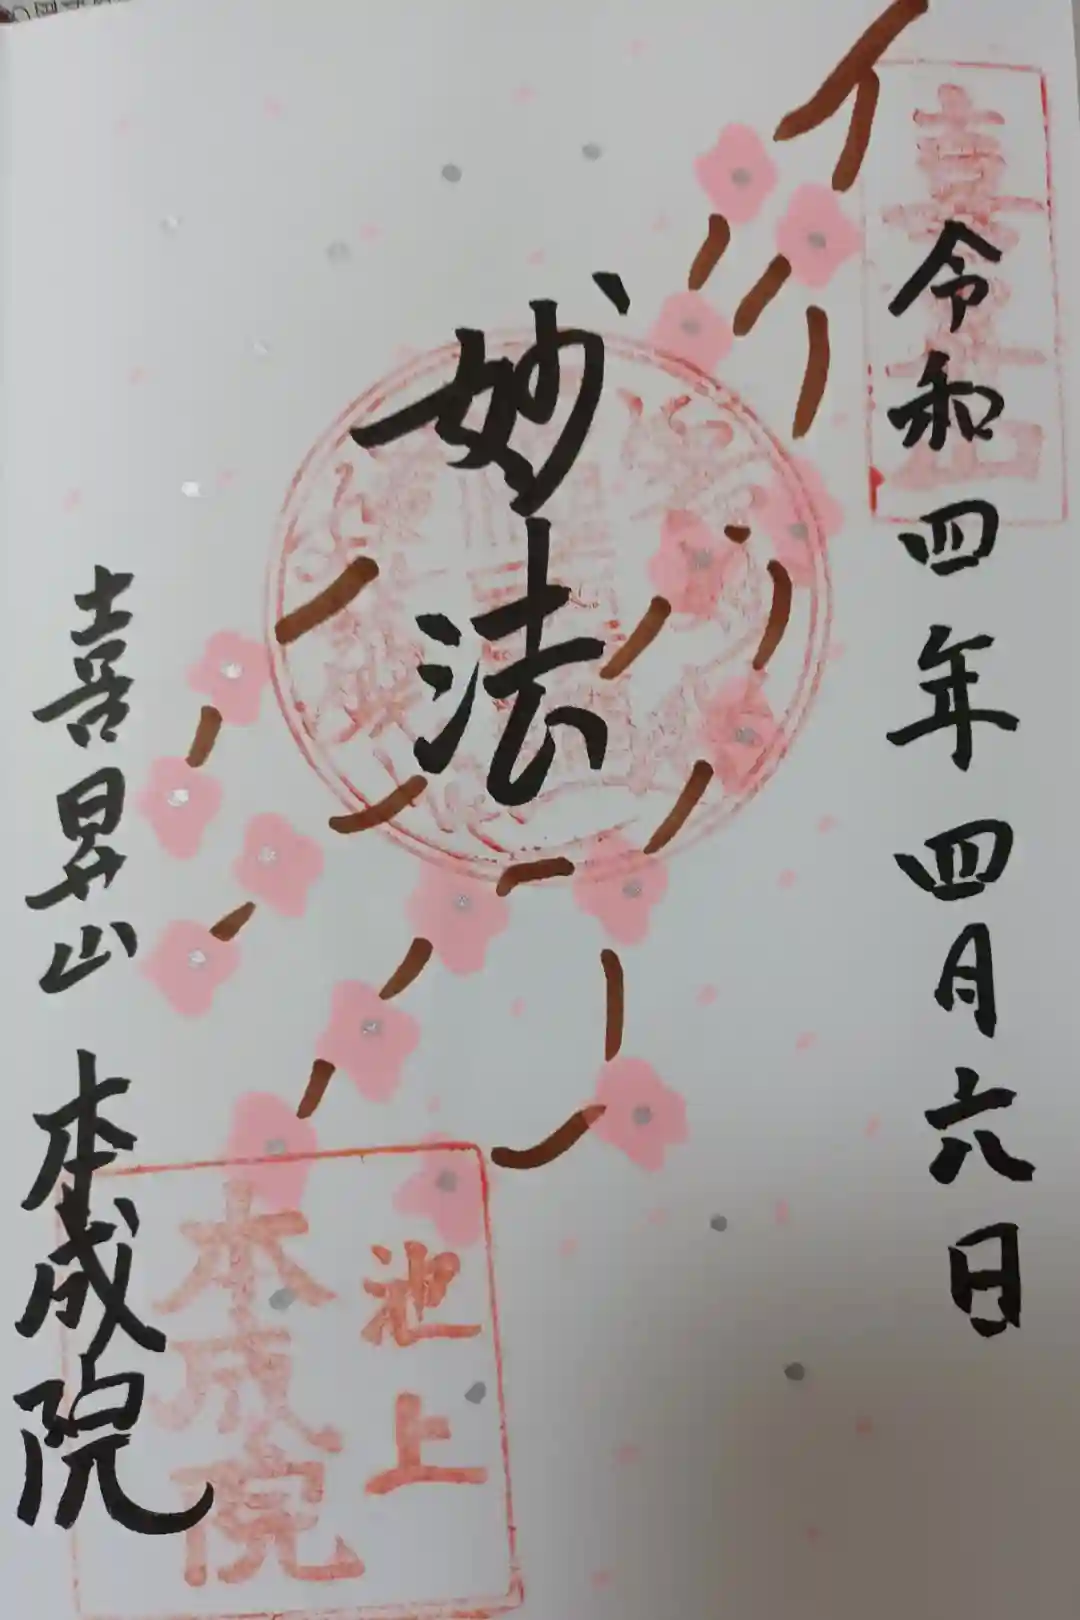 喜昇山
令和四年四月六日
妙法
喜昇山 本成院
池上
本成院